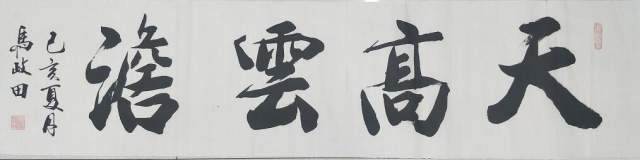 天高雲澹
己亥夏月
馬政田